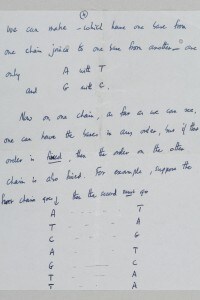 we can make – which have one base from
one chain joined to one base from another – are
only
A with T
and G with C.
Now on one chain, as far as we can see,
one can have the bases in any order, but if their
order is fixed, then the order on the other
chain is also fixed. For example, suppose the
first chain goes ↓ then the second must go
A - - - - T
T - - - - A
C - - - - G
A - - - - T
G - - - - C
T - - - - A
T - - - - A